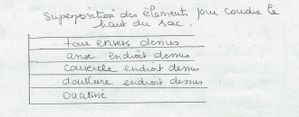 Superposition des éléments pour coudre le
haut du sac.
tour envers dessus
anse endroit dessus
couvercle endroit dessus
doublure endroit dessus
ouatine